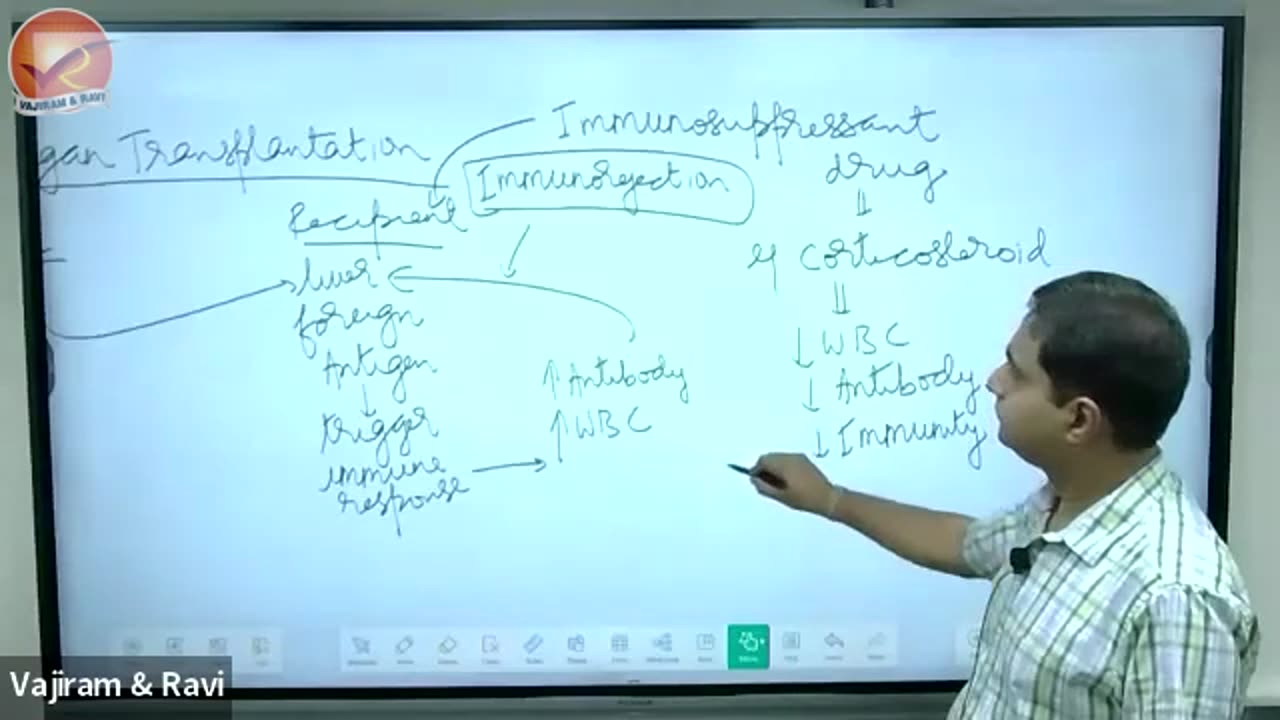 VAJIRAM & RAVI
gan Transplantation
Recipient
liver
foreign
Antigen
↓
trigger
immune
response →
↑ Antibody
↑ WBC
Immunorejection
Immunosuppressant
drug
⇓
eg Corticosteroid
⇓
↓ WBC
↓ Antibody
↓ Immunity
Vajiram & Ravi